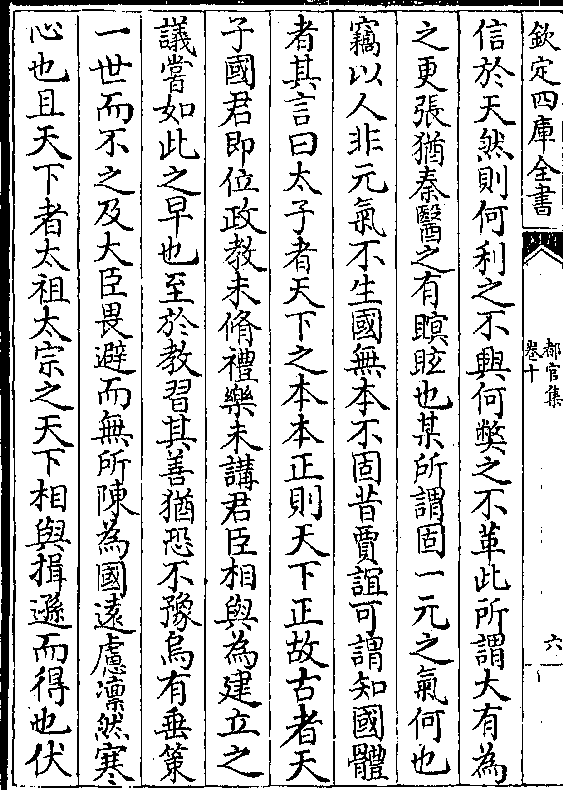 欽定四庫全書
都官集
卷十
六
信於天然則何利之不興何弊之不革此所謂大有為
之更張猶秦醫之有瞑眩也某所謂固一元之氣何也
竊以人非元氣不生國無本不固昔賈誼可謂知國體
者其言曰太子者天下之本本正則天下正故古者天
子國君即位政教未脩禮樂未講君臣相與為建立之
議嘗如此之早也至於教習其善猶恐不豫烏有垂策
一世而不之及大臣畏避而無所陳為國遠慮凛然寒
心也且天下者太祖太宗之天下相與揖遜而得也伏